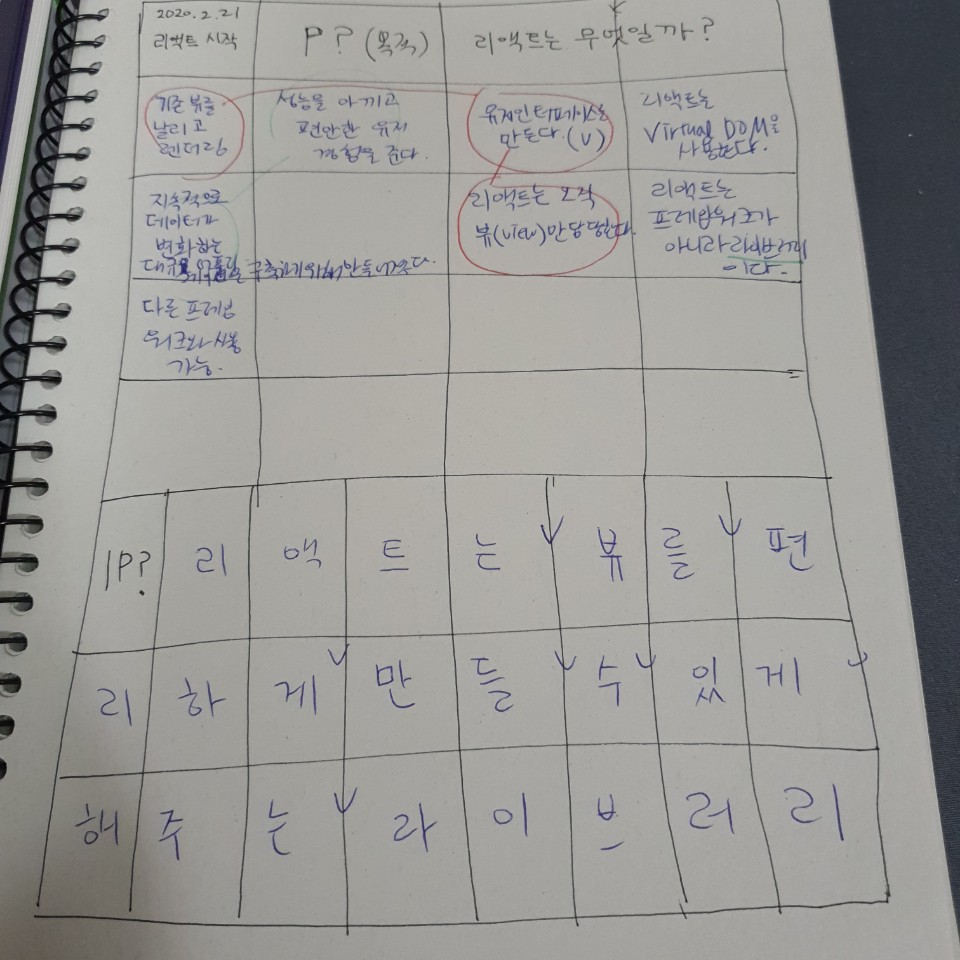 2020.2.21
리액트 시작
P? (목적)
리액트는 무엇일까?
기존 뷰를
날리고
렌더링
성능을 아끼고
편안한 유저
경험을 준다.
유저인터페이스를
만든다.(V)
리액트는
Virtual DOM을
사용한다.
지속적으로
데이터가
변화하는
대규모 구축하기위해 만들어졌다.
리액트는 오직
뷰(view)만담당한다.
리액트는
프레임워크가
아니라 라이브러리
이다.
다른 프레임
워크와 사용
가능.
1P? 리액트는 뷰를 편
리하게 만들 수 있게
해주는 라이브러리